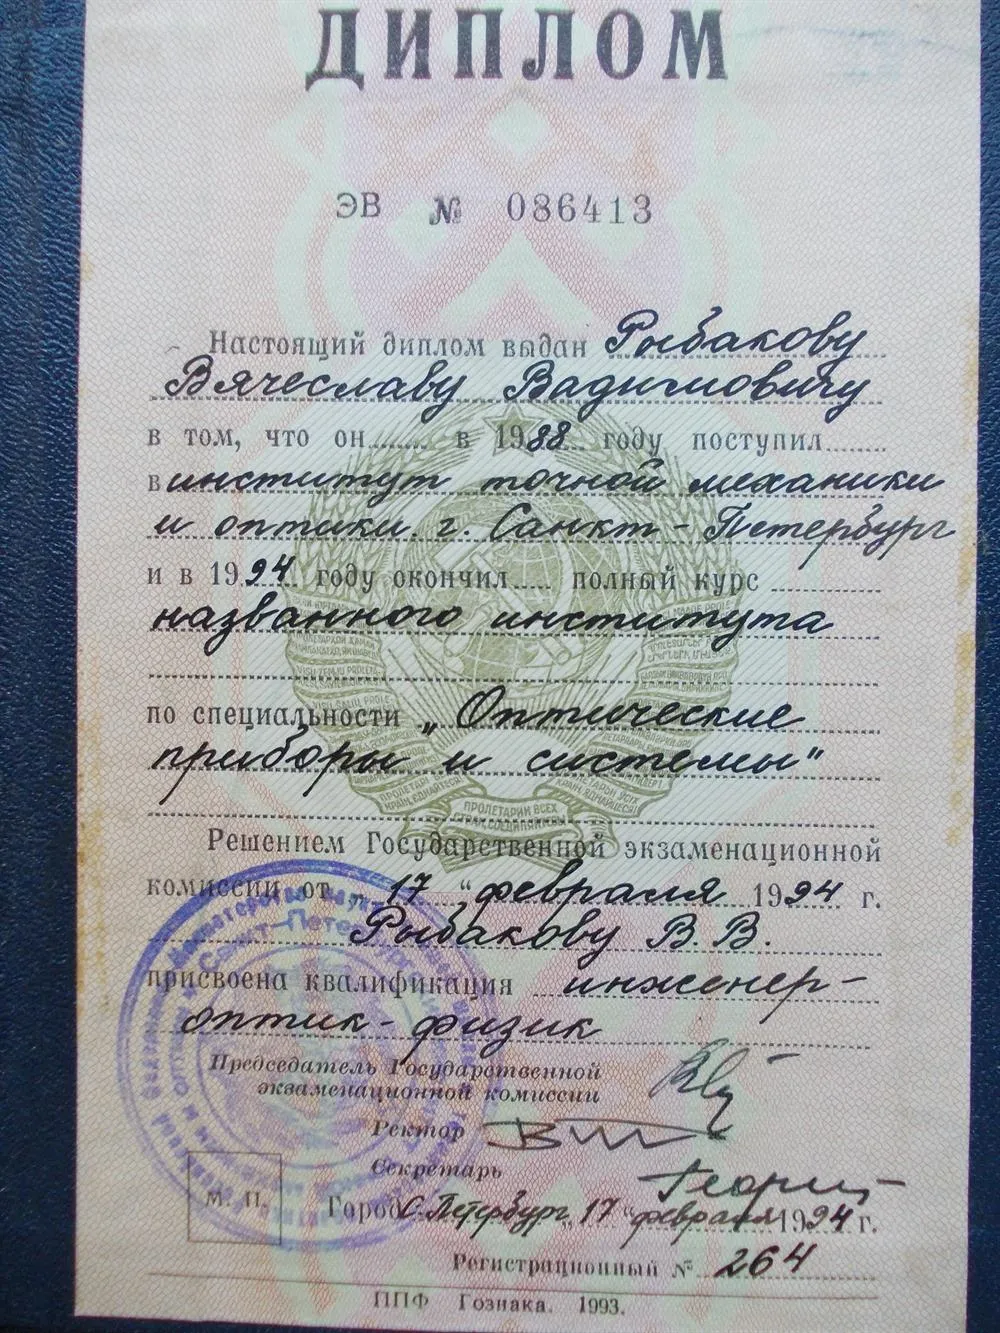 ДИПЛОМ
ЭВ № 086413
Настоящий диплом выдан Рыбакову
Вячеславу Вадимовичу
в том, что он в 1988 году поступил
в институт точной механики
и оптики г. Санкт-Петербург
и в 1994 году окончил полный курс
названного института
по специальности „Оптические
приборы и системы"
ПРОЛЕТАРИИ ВСЕХ
СТРАН, СОЕДИНЯЙТЕСЬ!
Решением Государственной экзаменационной
комиссии от „17" февраля 1994 г.
Рыбакову В. В.
присвоена квалификация инженер-
оптик-физик
Председатель Государственной
экзаменационной комиссии
Ректор
Секретарь
М. П.
Город С. Петербург, „17" февраля 1994 г.
Регистрационный № 264
ППФ Гознака. 1993.